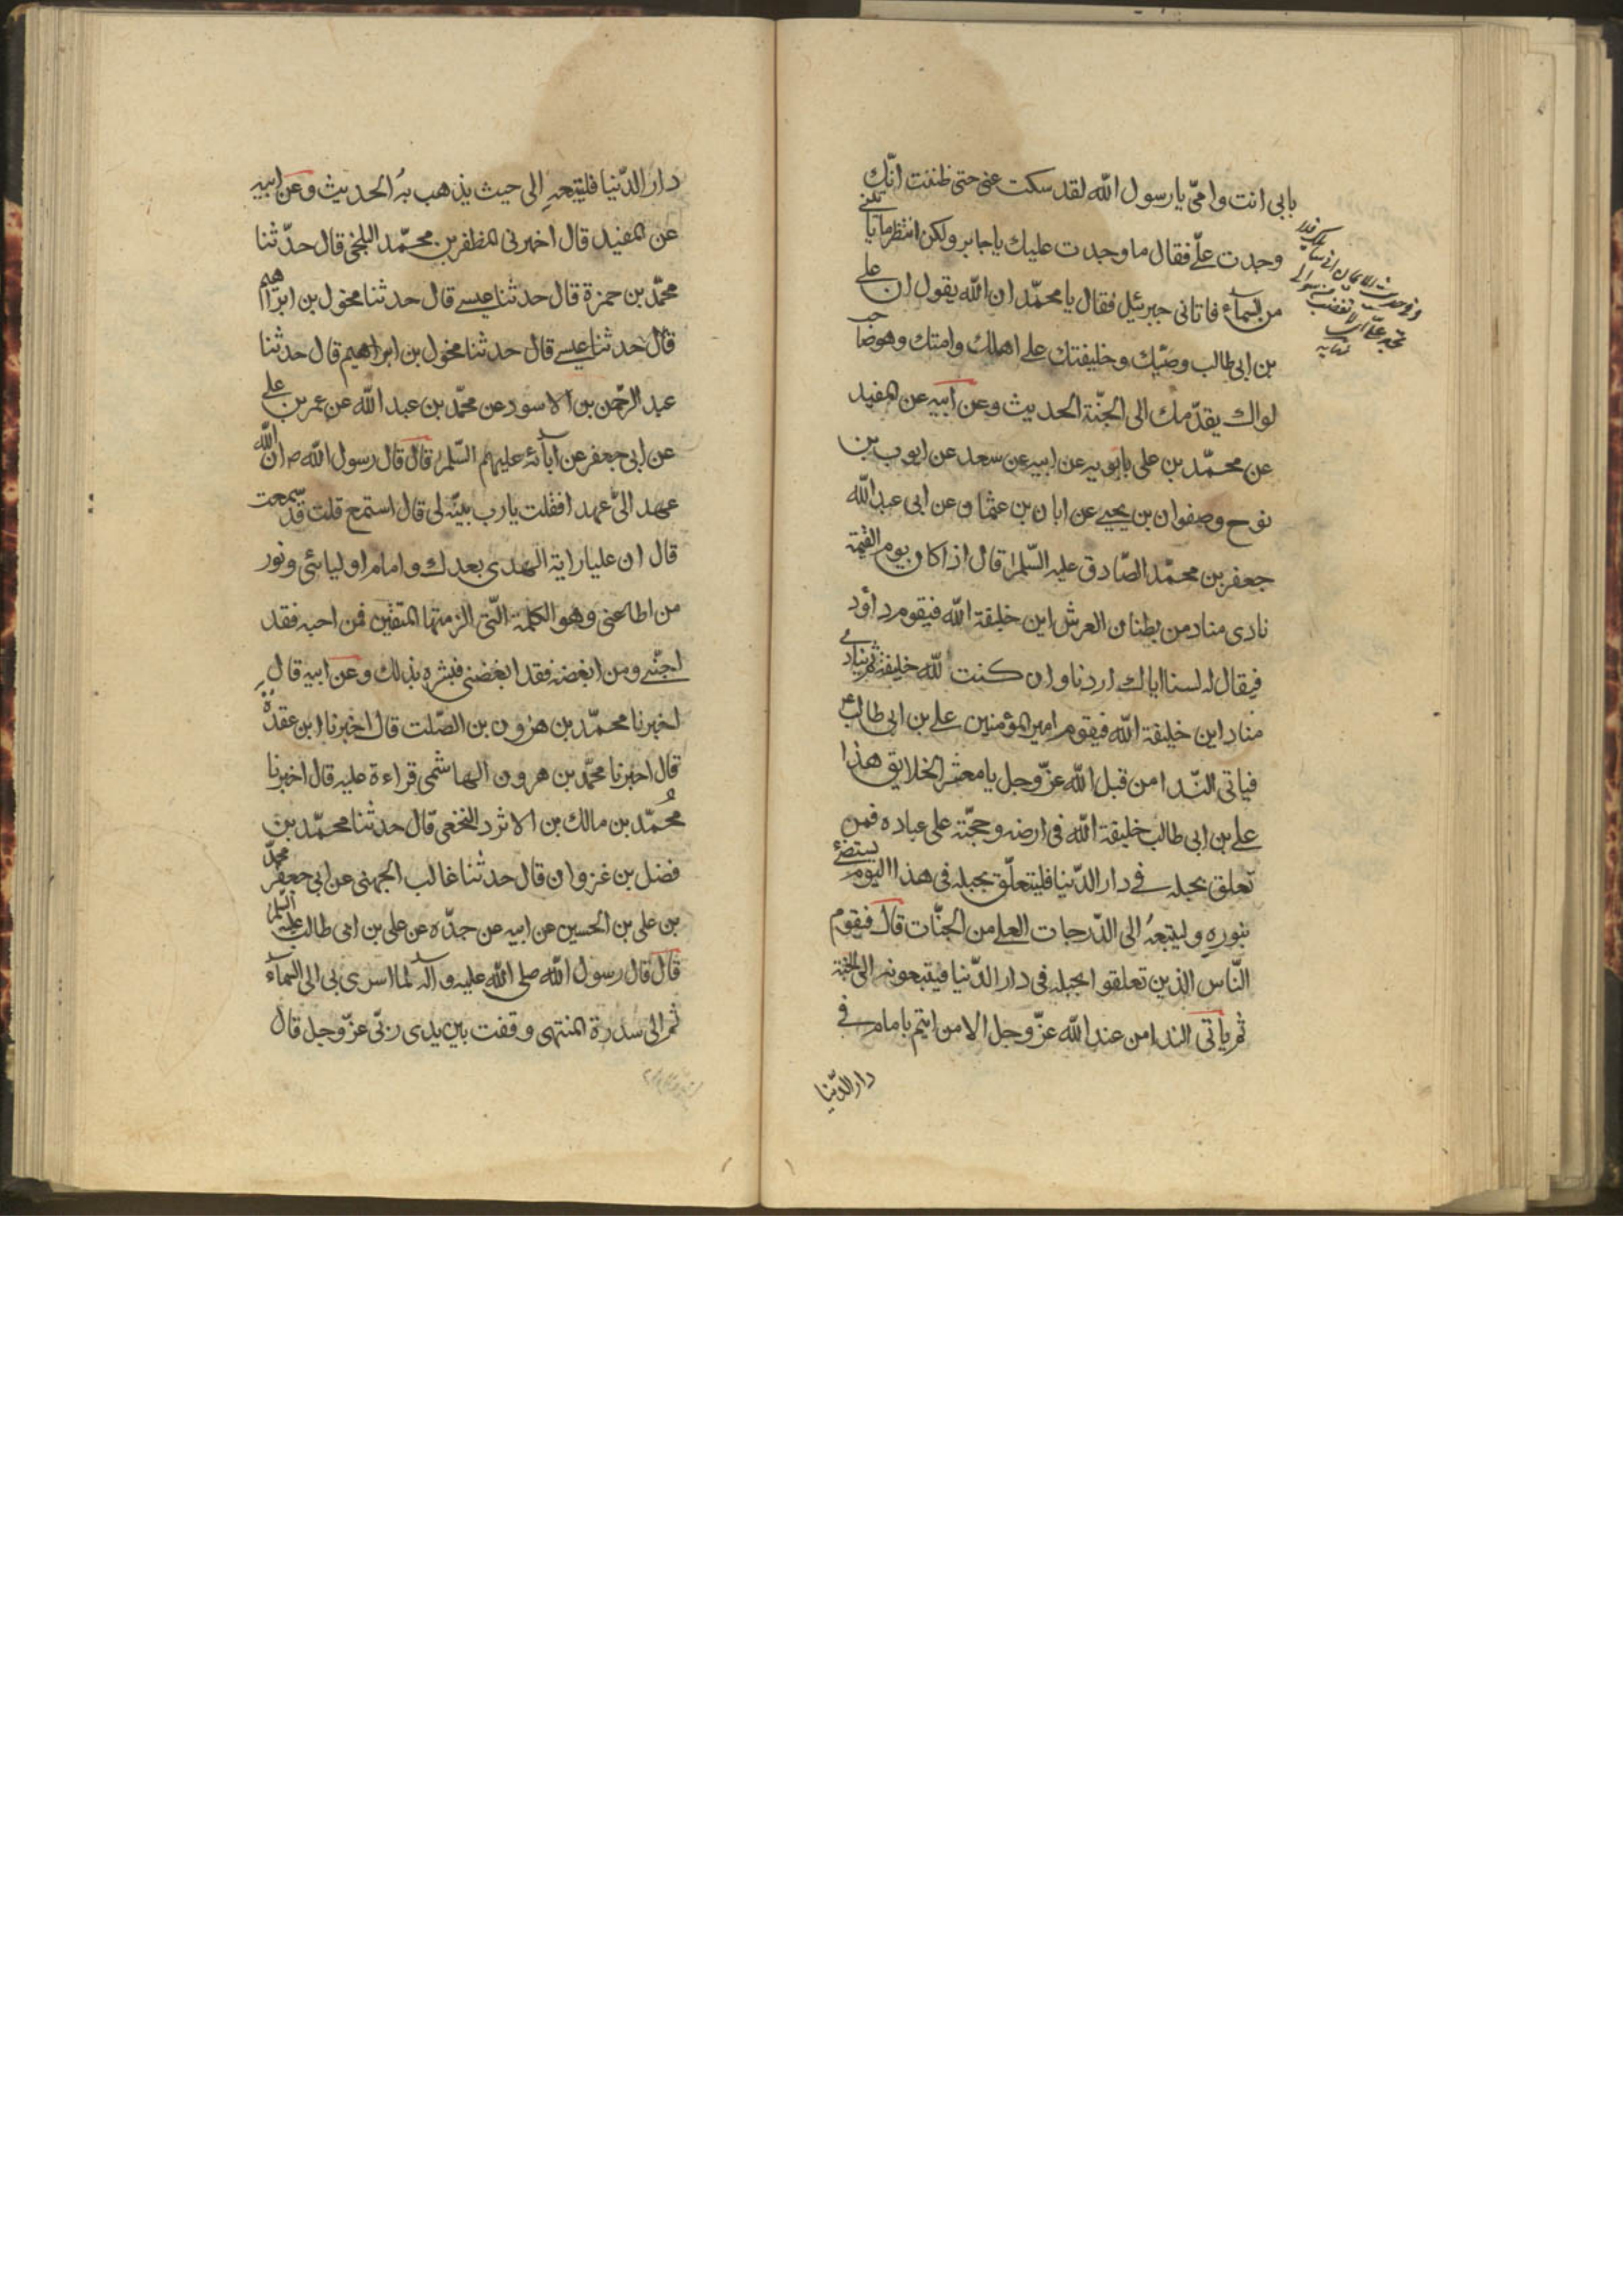 بابى انت وامّى يا رسول الله لقد سكت عنى حتى ظننت انّك
وجدت علىّ فقال ما وجدت عليك يا جابر ولكن انتظر ما ياتينى
من السمآء فاتانى جبرئيل فقال يا محمّد ان الله يقول ان على
بن ابى طالب وصيّك وخليفتك على اهلك وامتك وهو صاحب
لوائك يقدّمك الى الجنّة الحديث وعن ابيه عن المفيد
عن محمّد بن على بابويه عن ابيه عن سعد عن ايوب بن
نوح وصفوان بن يحيى عن ابان بن عثما وعن ابى عبد الله
جعفر بن محمّد الصّادق عليه السّلم قال اذا كان يوم القيمة
نادى مناد من بطنان العرش اين خليفة الله فيقوم داؤد
فيقال له لسنا اياك اردنا وان كنت لله خليفة ثم ينادى
مناد اين خليفة الله فيقوم امير المؤمنين على بن ابى طالب ع
فياتى النّدا من قبل الله عزّ وجل يا معشر الخلايق هذا
على بن ابى طالب خليفة الله فى ارضه وحجّته على عباده فمن
تعلق بحبله فى دار الدّنيا فليتعلّق بحبله فى هذا اليوم يستضئ
بنوره وليتبعه الى الدّرجات العلى من الجنّات قال فيقوم
النّاس الذين تعلقوا بحبله فى دار الدّنيا فيتبعونه الى الجنة
ثم ياتى الندا من عند الله عزّ وجل الا من ايتم بامام فى
دار الدّنيا
دار الدّنيا فليتبعه الى حيث يذهب به الحديث وعن ابيه
عن المفيد قال اخبرنى المظفر بن محمّد البلخى قال حدّثنا
محمّد بن حمزة قال حدثنا عيسى قال حدثنا مخول بن ابراهيم
قال حدثنا عيسى قال حدثنا مخول بن ابراهيم قال حدثنا
عبد الرحّمن بن الاسود عن محمّد بن عبد الله عن عمر بن على
عن ابى جعفر عن ابآئه عليهم السّلم قال قال رسول الله ص ان الله
عهد الىّ عهدا فقلت يا رب بيّنه لى قال استمع قلت قد سمعت
قال ان عليا راية الهدى بعدك وامام اوليائى ونور
من اطاعنى وهو الكلمة الّتى الزمتها المتقين فمن احبه فقد
احبّنى ومن ابغضه فقد ابغضنى فبشره بذلك وعن ابيه قال
اخبرنا محمّد بن هرون بن الصّلت قال اخبرنا ابن عقدة
قال اخبرنا محمّد بن هرون الهاشمى قراءة عليه قال اخبرنا
محُمّد بن مالك بن الاثرد النخعى قال حدثنا محمّد بن
فضل بن غزوان قال حدثنا غالب الجهنى عن ابى جعفر محمّد
بن على بن الحسين عن ابيه عن جدّه عن على بن ابى طالب عليه السّلم
قال قال رسول الله صلى الله عليه وآله لما اسرى بى الى السمآء
ثم الى سدرة المنتهى وقفت بين يدى ربّى عزّ وجل قال